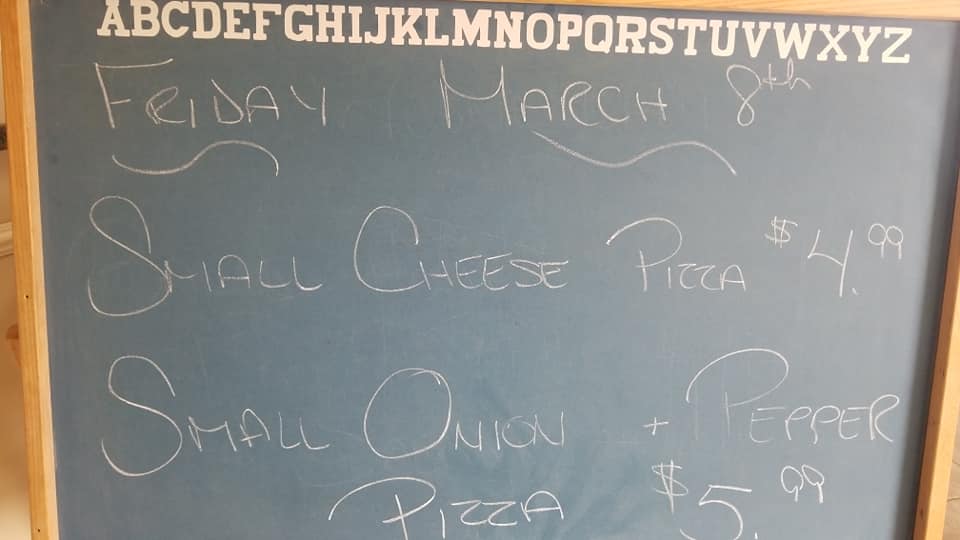 ABCDEFGHIJKLMNOPQRSTUVWXYZ
FRIDAY MARCH 8th
SMALL CHEESE PIZZA $4.99
SMALL ONION + PEPPER
PIZZA $5.99